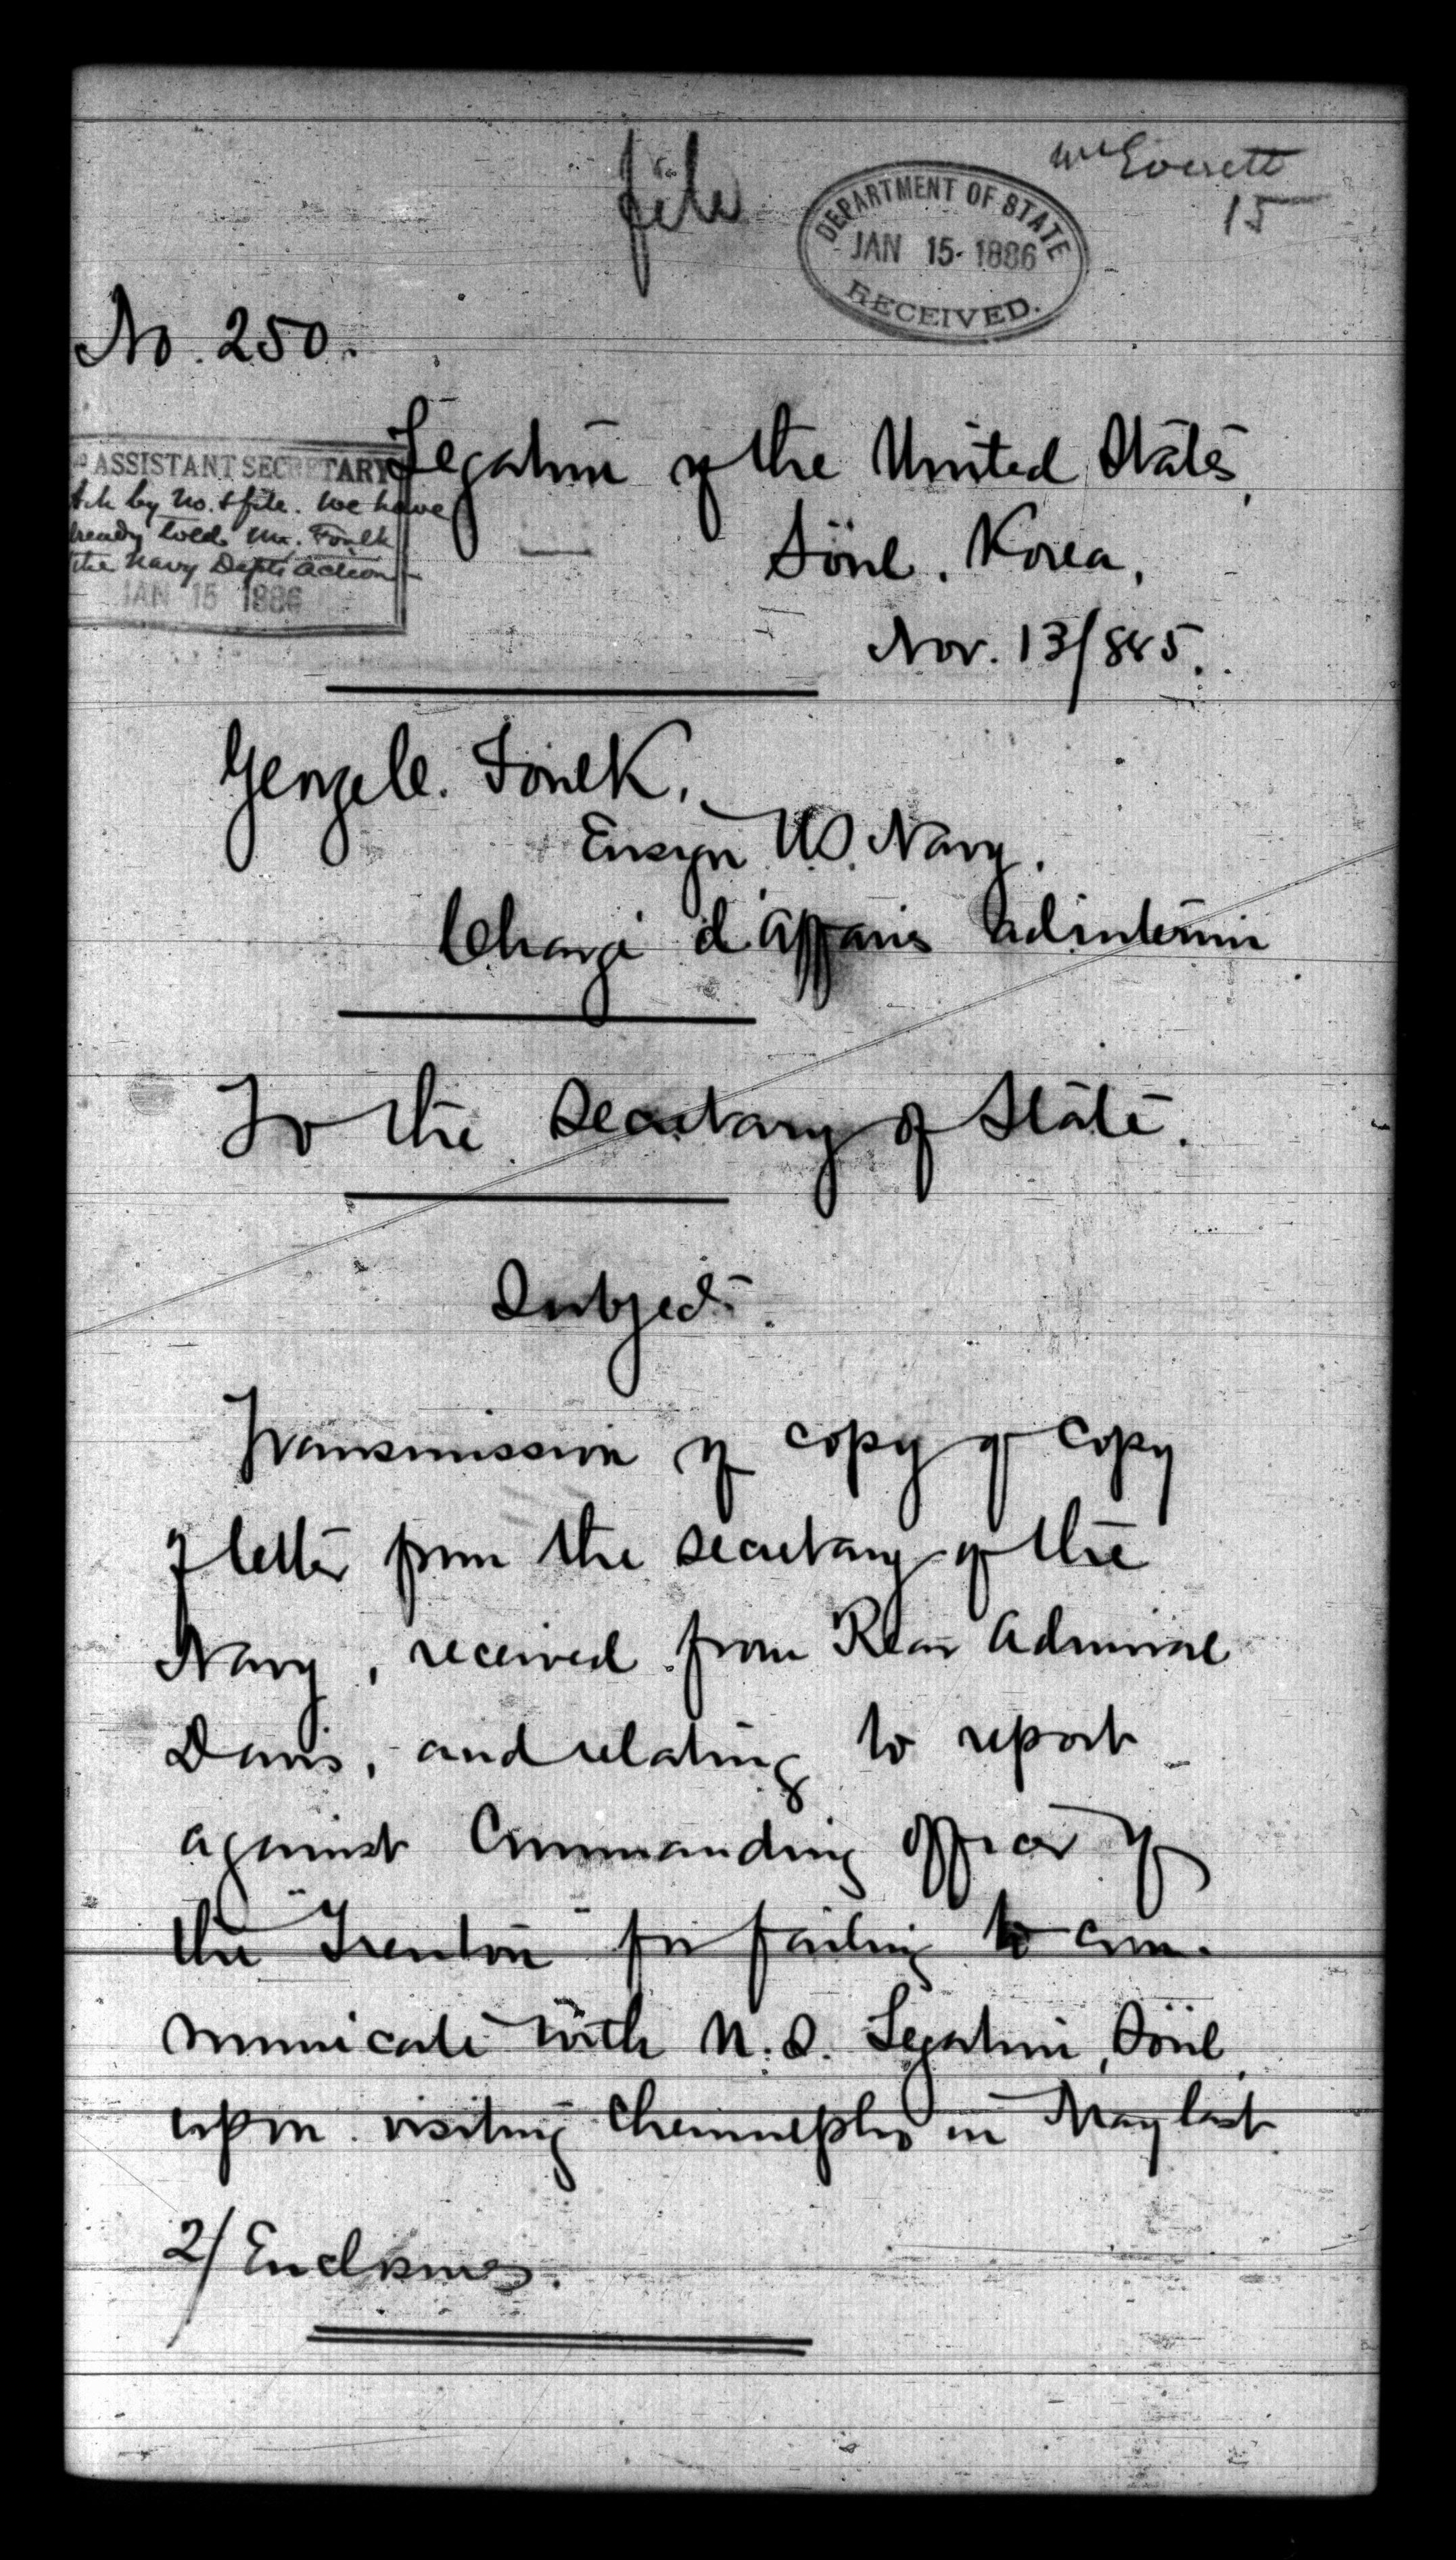 file
Mr Everett
15
DEPARTMENT OF STATE
JAN 15 1886
RECEIVED.
No. 250.
ASSISTANT SECRETARY
Ack by No. & file. We have
already told Mr. Foulk
the Navy Dept's action
JAN 15 1886
Legation of the United States,
Söul, Korea,
Nov. 13/885.
George C. Foulk,
Ensign U.S. Navy.
Chargé d'Affaires ad interim
To the Secretary of State.
Subject.
Transmission of copy of copy
of letter from the Secretary of the
Navy, received from Rear Admiral
Davis, and relating to report
against Commanding officer of
the "Trenton" for failing to com-
municate with U.S. Legation, Söul,
upon visiting Chemulpho in May last
2/ Enclosures.